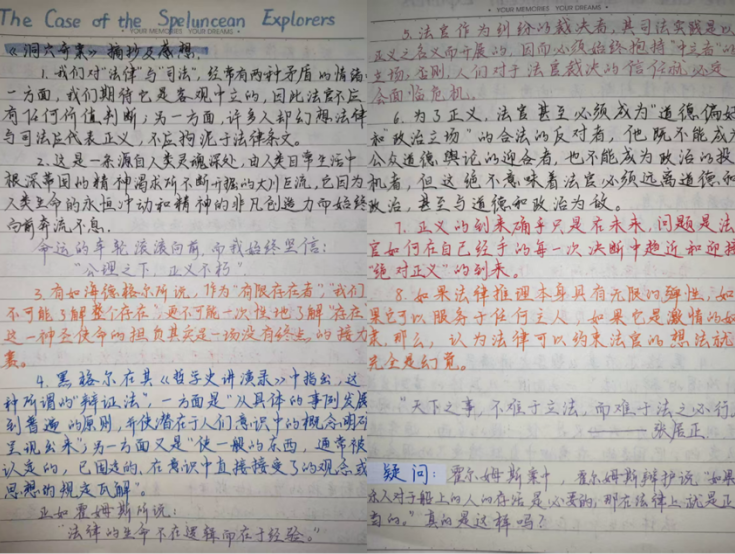 The Case of the Speluncean Explorers
YOUR MEMORIES YOUR DREAMS
《洞穴奇案》摘抄及感想.
1. 我们对“法律”与“司法”, 经常有两种矛盾的情绪
一方面, 我们期待它是客观中立的, 因此法官不应
有任何价值判断; 另一方面, 许多人却幻想法律
与司法应代表正义, 不应拘泥于法律条文。
2. 这是一条源自人类灵魂深处, 由人类日常生活中
根深蒂固的精神渴求所不断开掘的大川巨流, 它因为
人类生命的永恒冲动和精神的非凡创造力而始终
向前奔流不息.
命运的车轮滚滚向前, 而我始终坚信:
“公理之下, 正义不朽”
3. 有如海德格尔所说, 作为“有限存在者”, “我们
不可能了解整个存在”, 更不可能一次性地了解“存在
这一神圣使命的担负其实是一场没有终点的接力
赛。
4. 黑格尔在其《哲学史讲演录》中指出, 这
种所谓的“辩证法”, 一方面是“从具体的事例发展
到普遍的原则, 并使潜在于人们意识中的概念明确
呈现出来”; 另一方面又是“使一般的东西, 通常被
认定的, 已固定的, 在意识中直接接受了的观念或
思想的规定瓦解”。
正如霍姆斯所说:
“法律的生命不在逻辑而在于经验。”
YOUR MEMORIES YOUR DREAMS
5. 法官作为纠纷的裁决者, 其司法实践是以
正义之名义而开展的, 因而必须始终抱持“中立者”的
立场, 否则, 人们对于法官裁决的信任就必定
会面临危机.
6. 为了正义, 法官甚至必须成为“道德偏好
和“政治立场”的合法的反对者, 他既不能成为
公众道德舆论的迎合者, 也不能成为政治的投
机者, 但这绝不意味着法官必须远离道德和
政治, 甚至与道德和政治为敌。
7. 正义的到来确乎只是在未来, 问题是法
官如何在自己经手的每一次决断中趋近和迎接
“绝对正义”的到来。
8. 如果法律推理本身具有无限的弹性, 如
果它可以服务于任何主人, 如果它是激情的奴
隶, 那么, 认为法律可以约束法官的想法就
完全是幻觉。
“天下之事, 不难于立法, 而难于法之必行.
——张居正.
疑问: 霍尔姆斯案中, 霍尔姆斯辩护说“如果
杀人对于船上的人的存活是必要的, 那在法律上就是正
当的。”真的是这样吗?